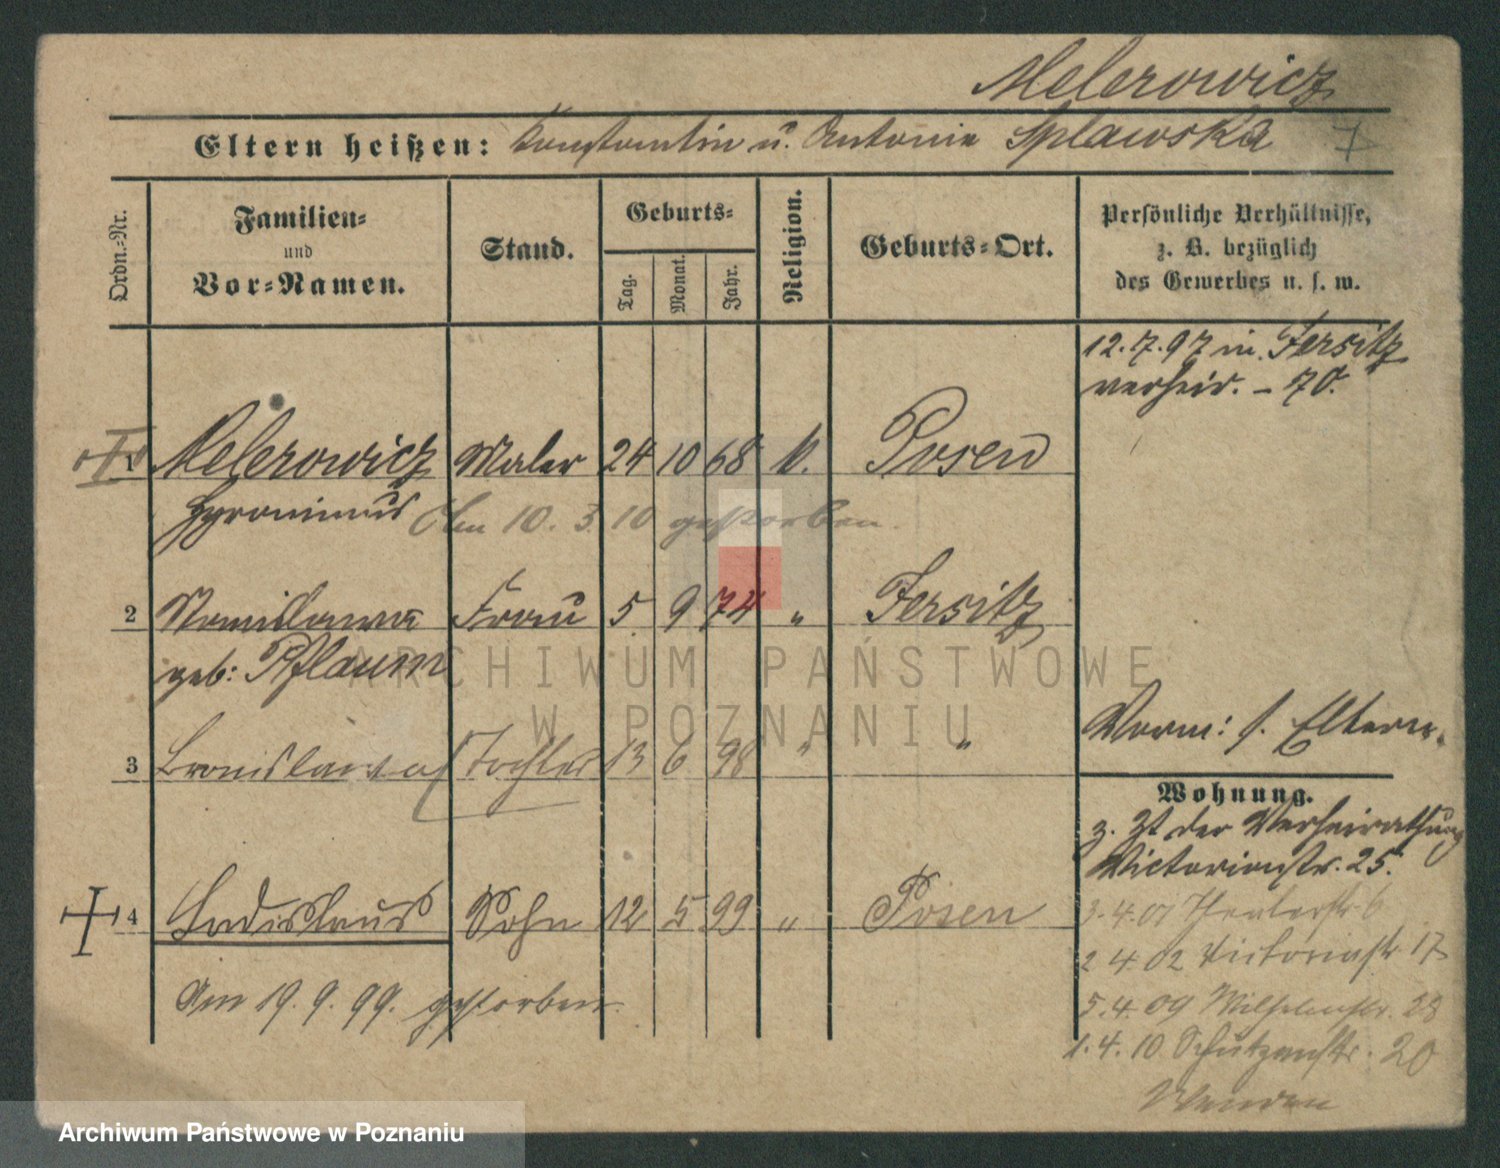 Melerowicz
Eltern heißen: Konstantin u. Antonie Splawska
Ordn.=Nr.
Familien=
und
Vor=Namen.
Stand.
Geburts=
Tag.
Monat.
Jahr.
Religion.
Geburts=Ort.
Persönliche Verhältnisse,
z. B. bezüglich
des Gewerbes u. s. w.
12.7.97 in Jersitz
verheir. – 70.
1 Melerowicz Maler 24 10 68 k. Posen
Hyronimus Am 10. 3. 10 gestorben.
2 Stanislawa Frau 5 9 74 " Jersitz
geb: Pflaum
3 Bronislawa Tochter 13 6 98 " "
Vorm: s. Eltern.
Wohnung.
z. Zt der Verheirathung
Victoriastr. 25.
4 Ladislaus Sohn 12 5 99 " Posen
Am 19. 9. 99. gestorben.
3.4.01 Theaterstr 6
2 4 02 Victoriastr 17
5.4.09 Wilhelmstr. 28
1.4.10 Schützenstr. 20
ARCHIWUM PAŃSTWOWE
W POZNANIU
Archiwum Państwowe w Poznaniu